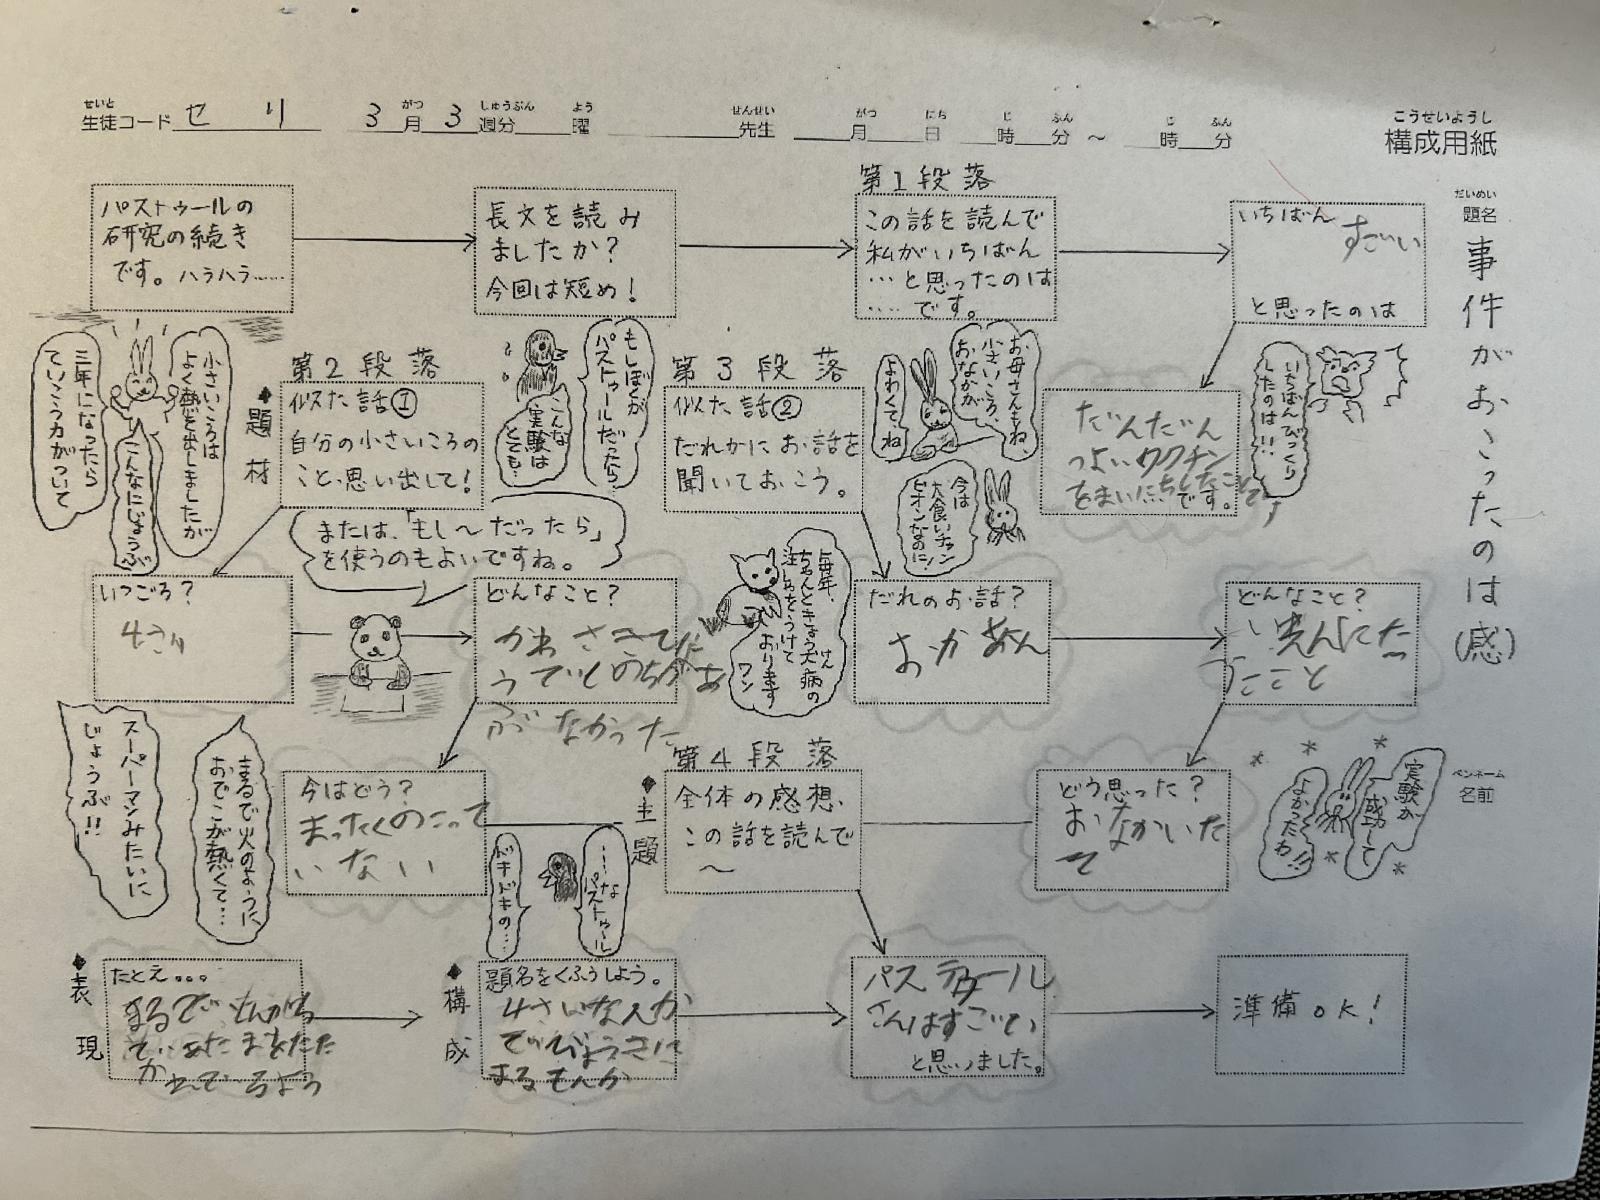 せいと がつ しゅうぶん よう せんせい がつ にち じ ふん じ ふん
生徒コード セリ 3月3週分 曜 先生 月 日 時 分 ～ 時 分
こうせいようし
構成用紙
だいめい
題名
事件がおこったのは(感)
ペンネーム
名前
パストゥールの
研究の続き
です。ハラハラ……
長文を読み
ましたか?
今回は短め!
第1段落
この話を読んで
私がいちばん
…と思ったのは
……です。
いちばん
すごい
と思ったのは
いちばんびっくり
したのは!!
だんだん
つよいワクチン
をまいにちしたこと
です。
小さいころは
よく熱を出しましたが
こんなにじょうぶ
三年になったら
ていこう力がついて
◆題材
第2段落
似た話①
自分の小さいころの
こと、思い出して!
または、「もし～だったら」
を使うのもよいですね。
もしぼくが
パストゥールだったら…
こんな
実験は
とても…
第3段落
似た話②
だれかにお話を
聞いておこう。
お母さんもね
小さいころ、
おなかが
よわくてね
今は
大食いチャン
ピオンなのに!
いつごろ?
4さい
どんなこと?
ぶなかった
毎年、
ちゃんときょう犬病の
けん
注しゃをうけて
おります
ワン
だれのお話?
おかあさん
どんなこと?
こと
どう思った?
今はどう?
まったくのこって
いない
スーパーマンみたいに
じょうぶ!!
まるで火のように
おでこが熱くて…
◆主題
第4段落
全体の感想、
この話を読んで
～
……な
パストゥール
ドキドキの…
実験が
成功して
よかったわ!!
◆表現
たとえ。。。
まるで
◆構成
題名をくふうしよう。
パストゥール
さんはすごい
と思いました。
準備OK!